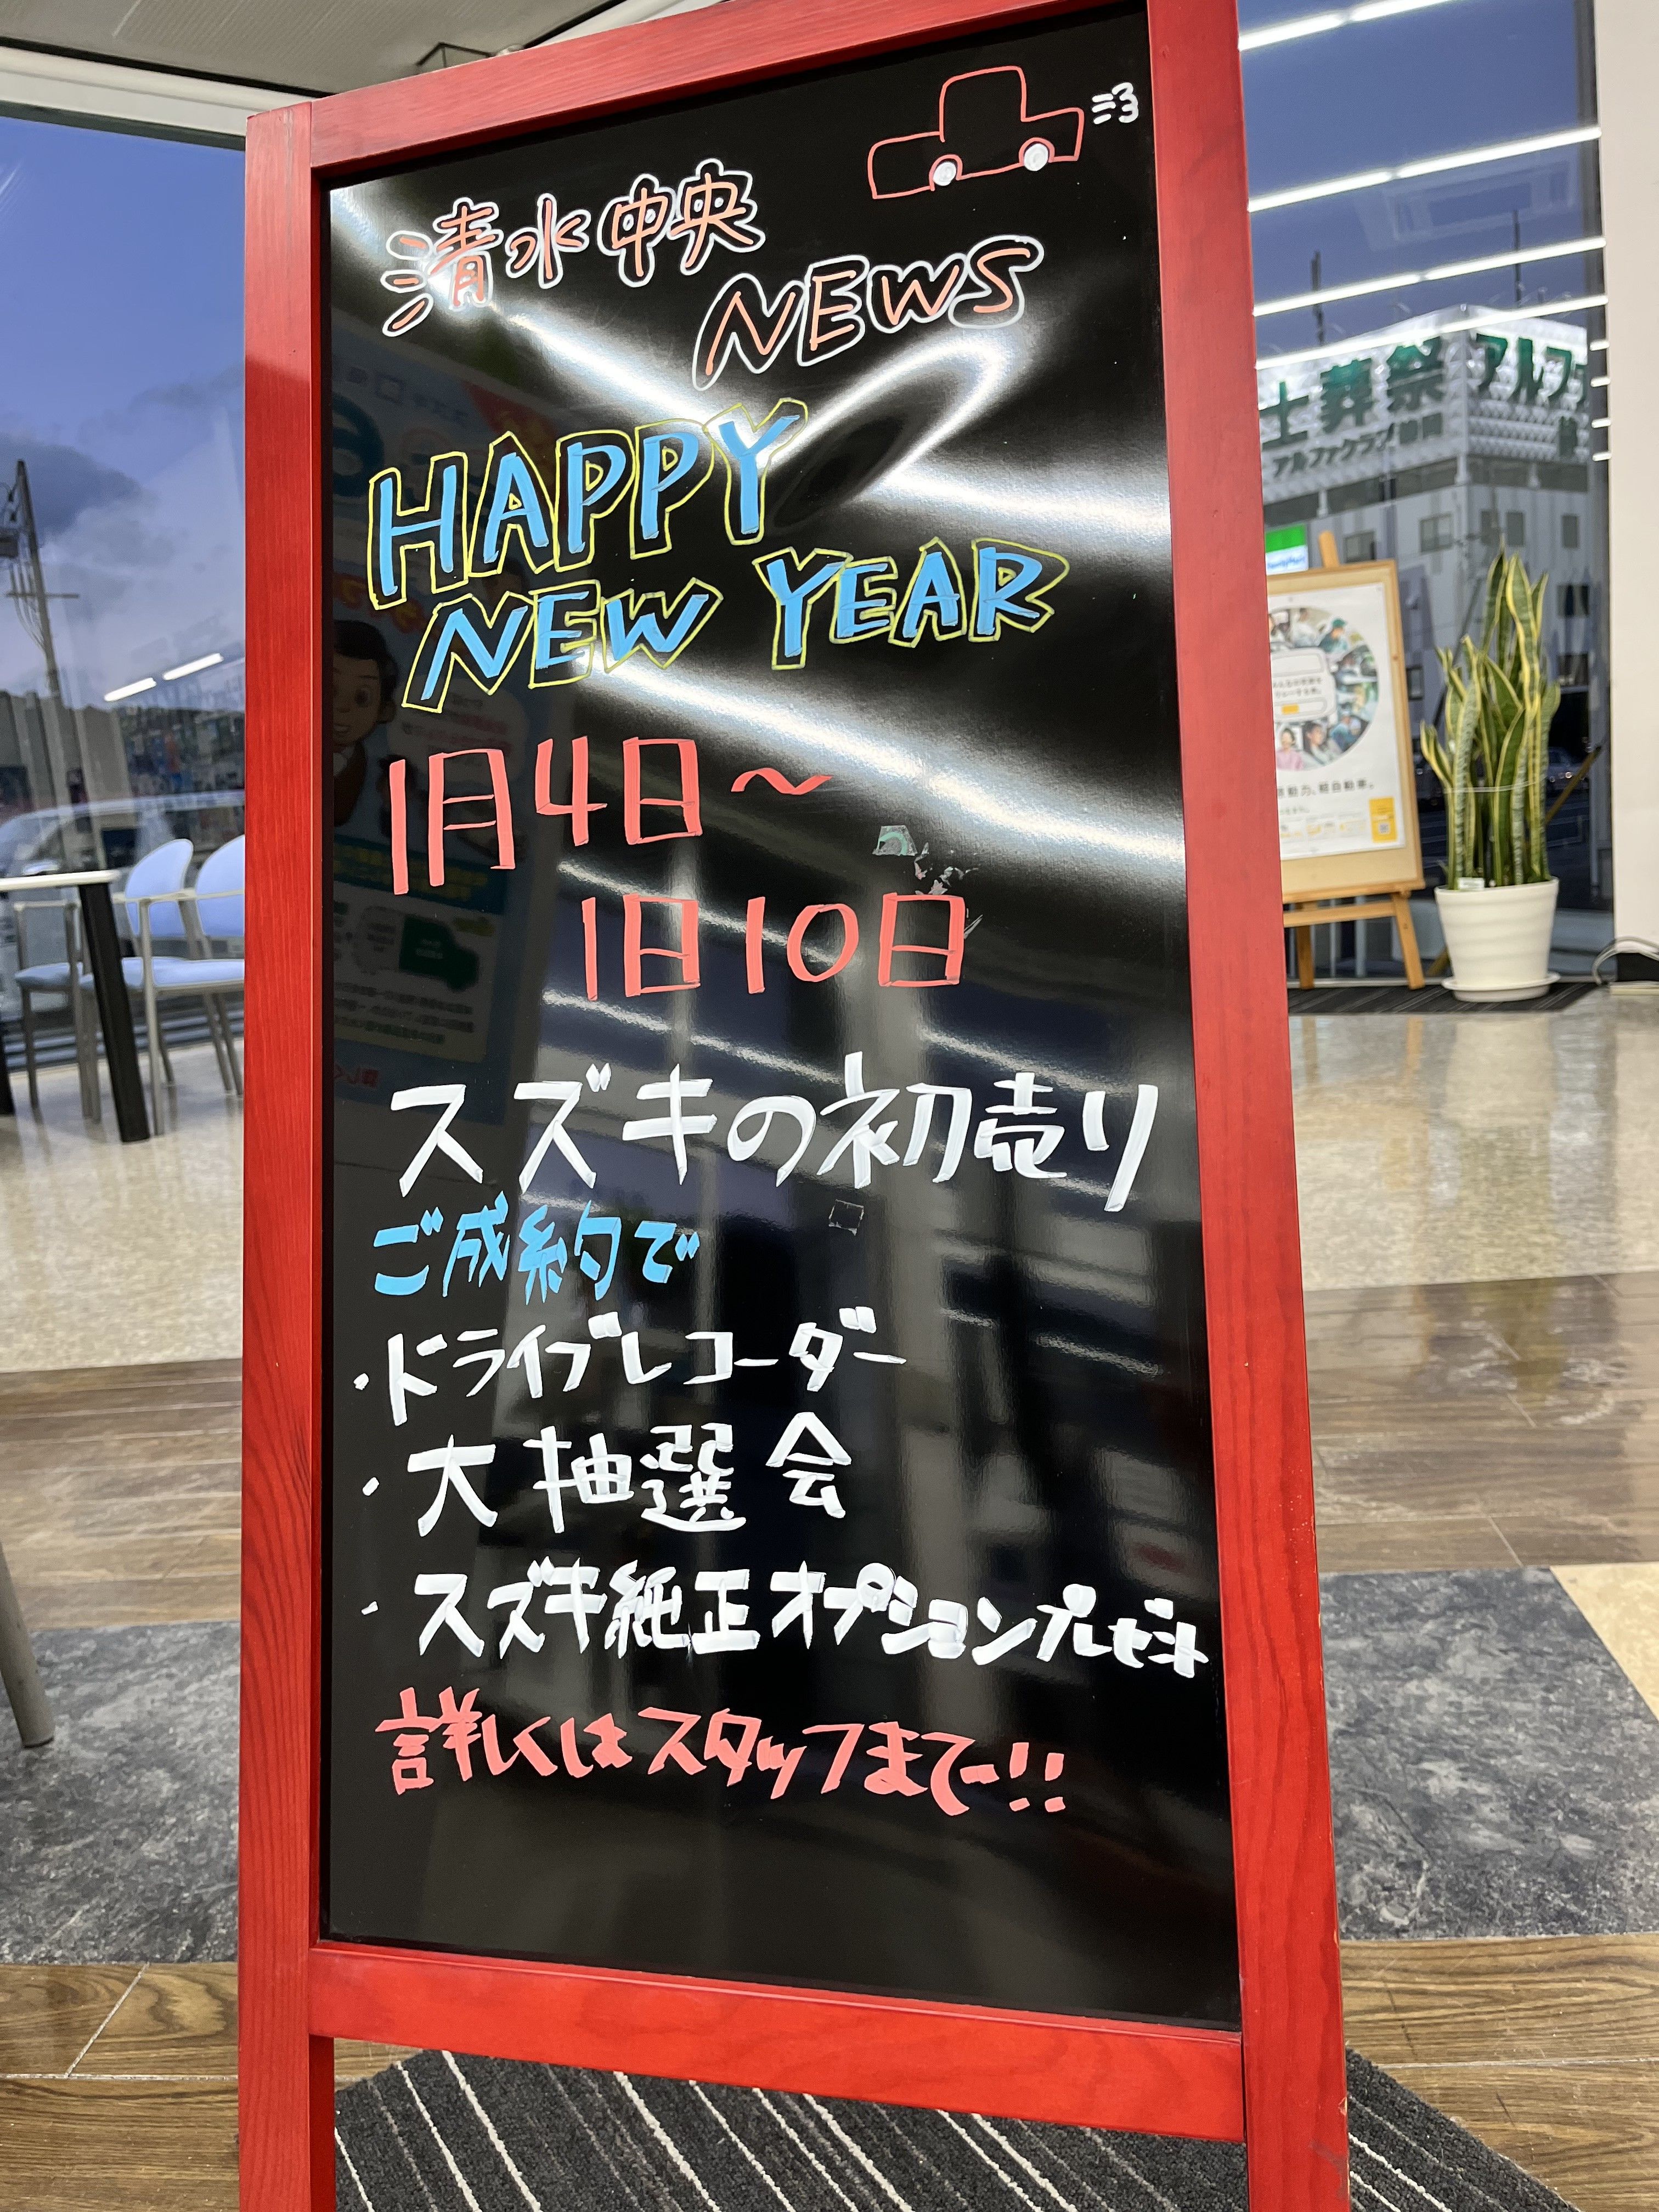 清水中央
NEWS
HAPPY
NEW YEAR
1月4日～
1日10日
スズキの初売り
ご成約で
・ドライブレコーダー
・大抽選会
・スズキ純正オプションプレゼント
詳しくはスタッフまで!!
士葬祭
アルファクラブ静岡
アルファ
軽自動車。